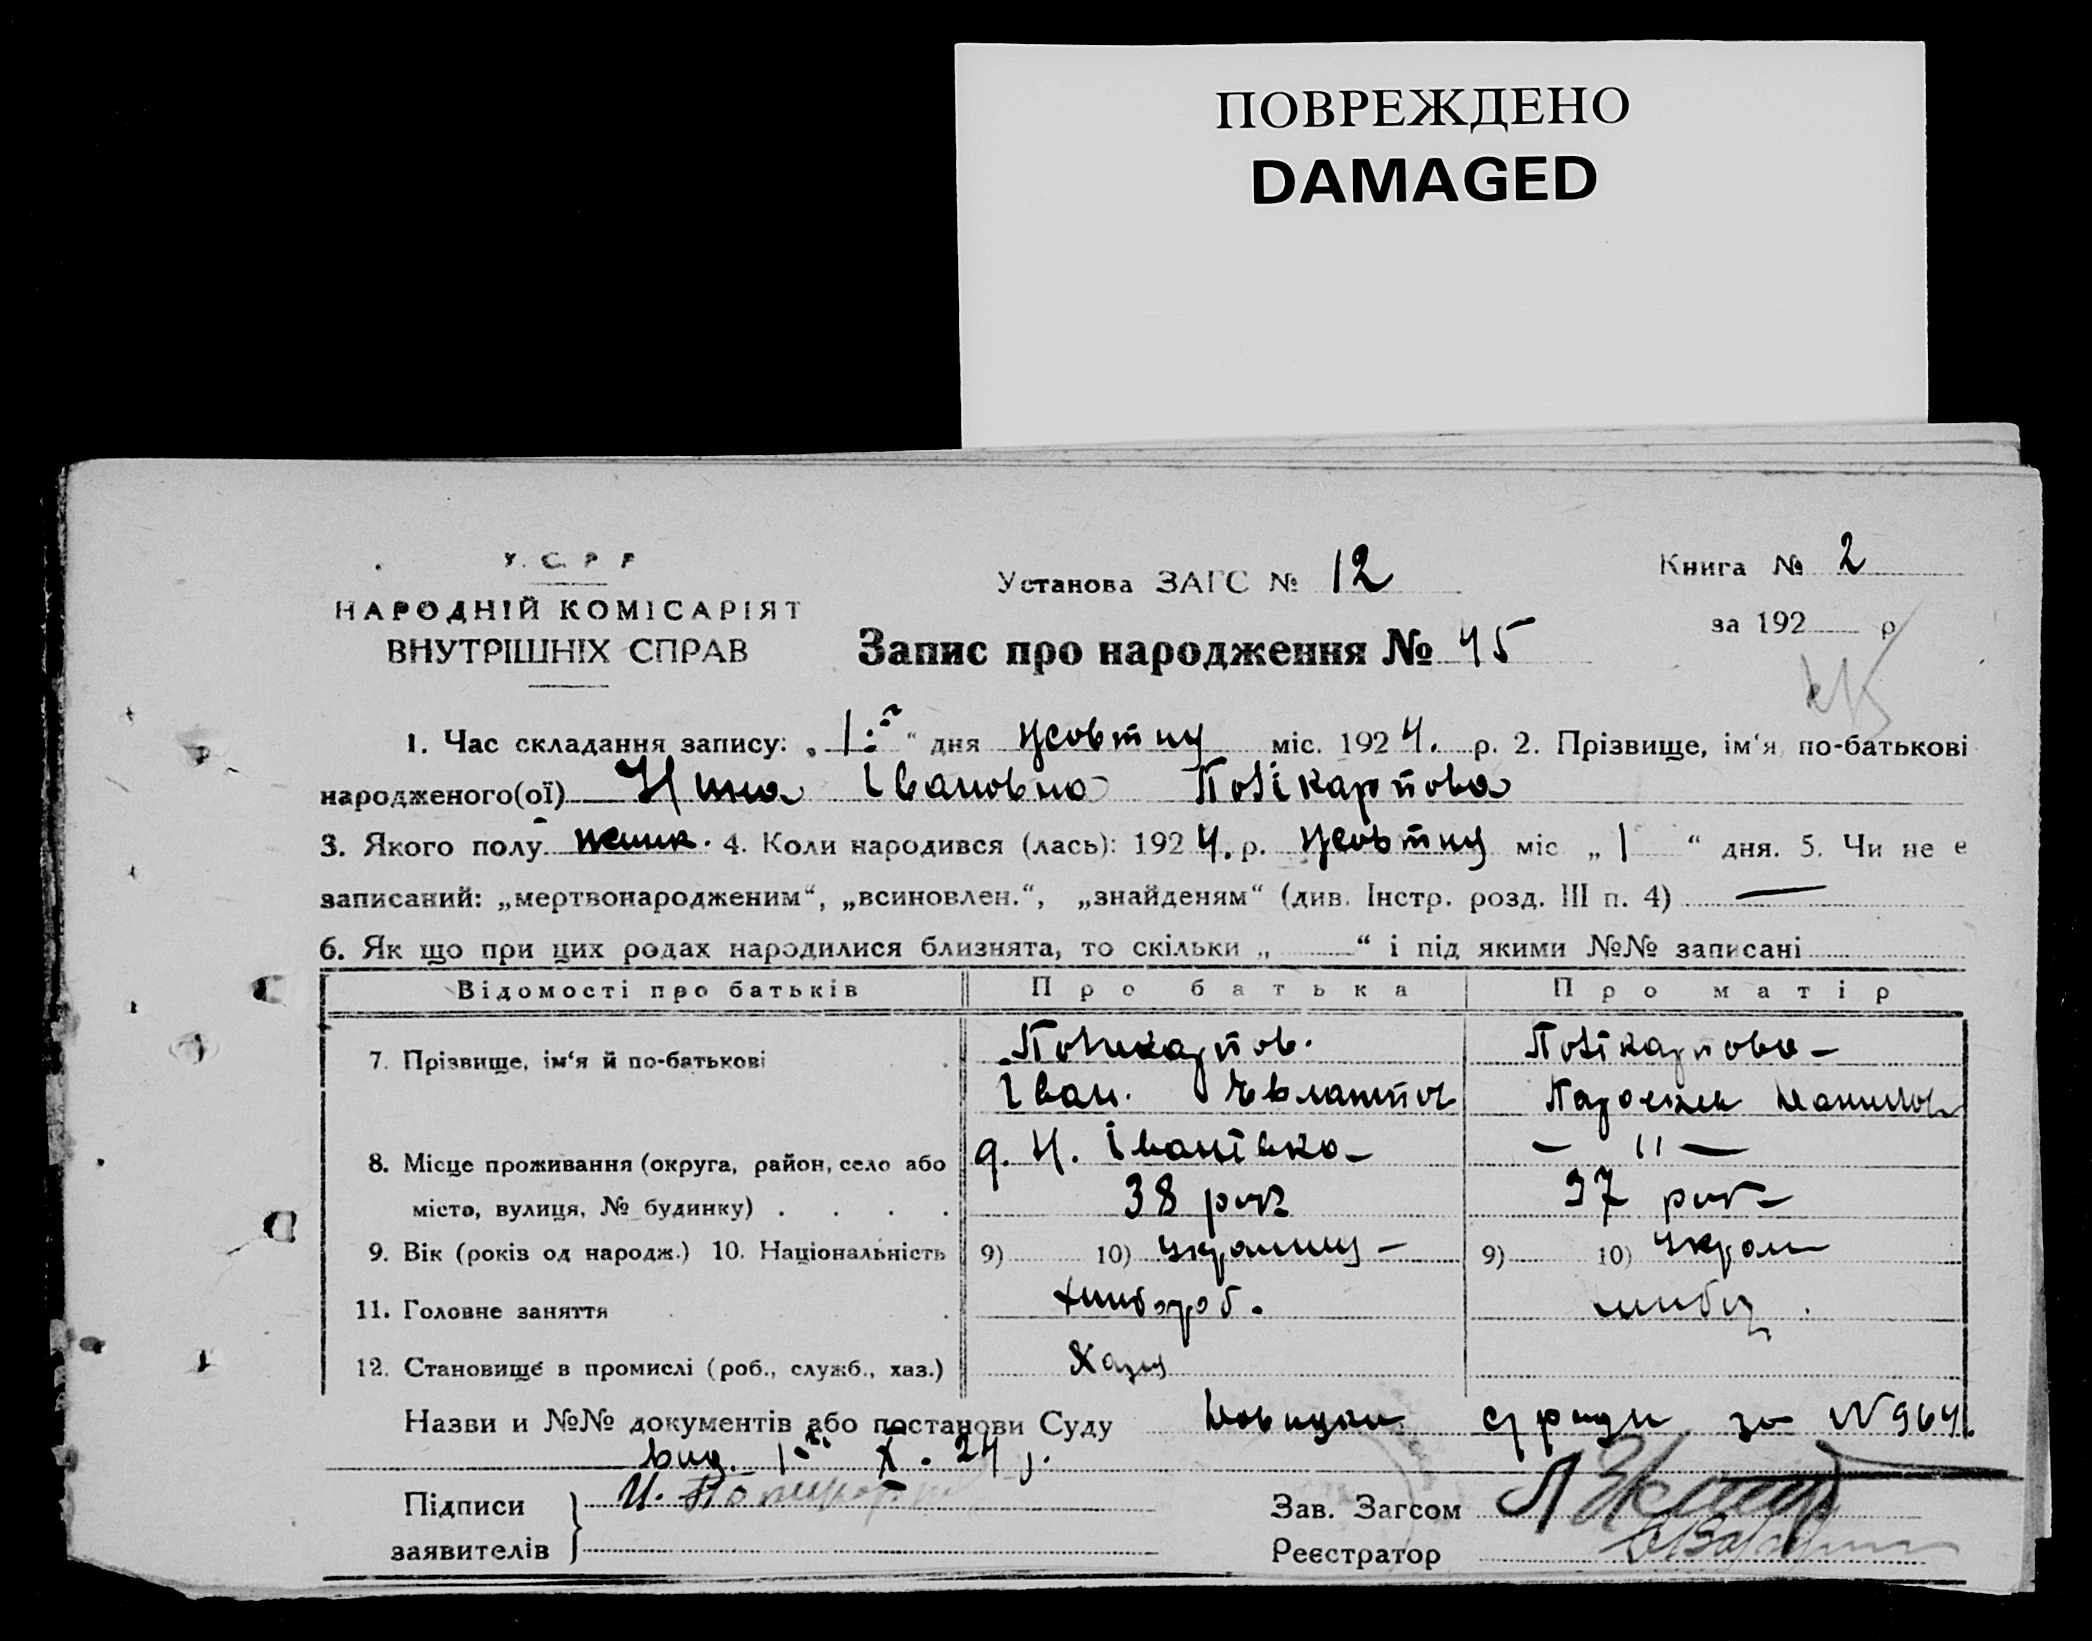 ПОВРЕЖДЕНО
DAMAGED
У. С. Р. Р.
НАРОДНІЙ КОМІСАРІЯТ
ВНУТРІШНІХ СПРАВ
Установа ЗАГС № 12
Книга № 2
за 192 р
Запис про народження № 45
1. Час складання запису: „ 1 “ дня жовтня міс. 1924. р. 2. Прізвище, ім‘я по-батькові
народженого(ої) Нина Івановна Полікарпова
3. Якого полу жінк. 4. Коли народився (лась): 1924. р. жовтня міс „ 1 “ дня. 5. Чи не є
записаний: „мертвонародженим“, „всиновлен.“, „знайденям“ (див. Інстр. розд. III п. 4) —
6. Як що при цих родах народилися близнята, то скільки „ “ і під якими №№ записані
Відомості про батьків Про батька Про матір
7. Прізвище, ім‘я й по-батькові Поликарпов. Полікарпова –
Іван.
8. Місце проживання (округа, район, село або Іванівка – – " –
місто, вулиця, № будинку) . . . . 38 рок 37 рок
9. Вік (років од народж.) 10. Національність 9) 10) 9) 10)
11. Головне заняття . . хлібороб.
12. Становище в промислі (роб., служб., хаз.)
Назви и №№ документів або постанови Суду за № 964.
вид. 1 X. 24 р.
Підписи
заявителів
Зав. Загсом
Реєстратор